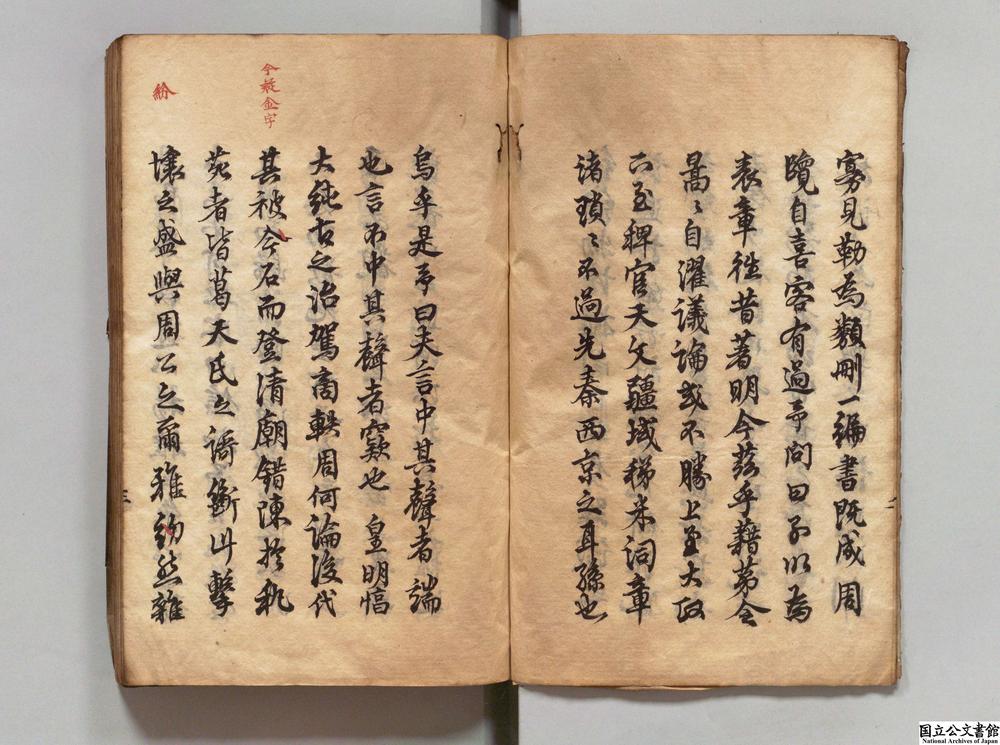 寡見勒為類刪一編書既成周
覽自喜客有過予問曰子以為
表章往昔著明今茲乎藉苐令
暠〻自濯議論或不勝上至大政
下至稗官天文疆域稊米詞章
諸瑣〻不過先秦西京之耳孫也
烏乎是予曰夫言中其聲者端
也言不中其聲者窾也 皇明幅
大純古之治駕商軼周何論後代
其被今石而登清廟錯陳於
苑者皆葛天氏之謌斷竹擊
壤之盛與周公之爾雅約然雜
今疑金字
紛
三
二
国立公文書館
National Archives of Japan